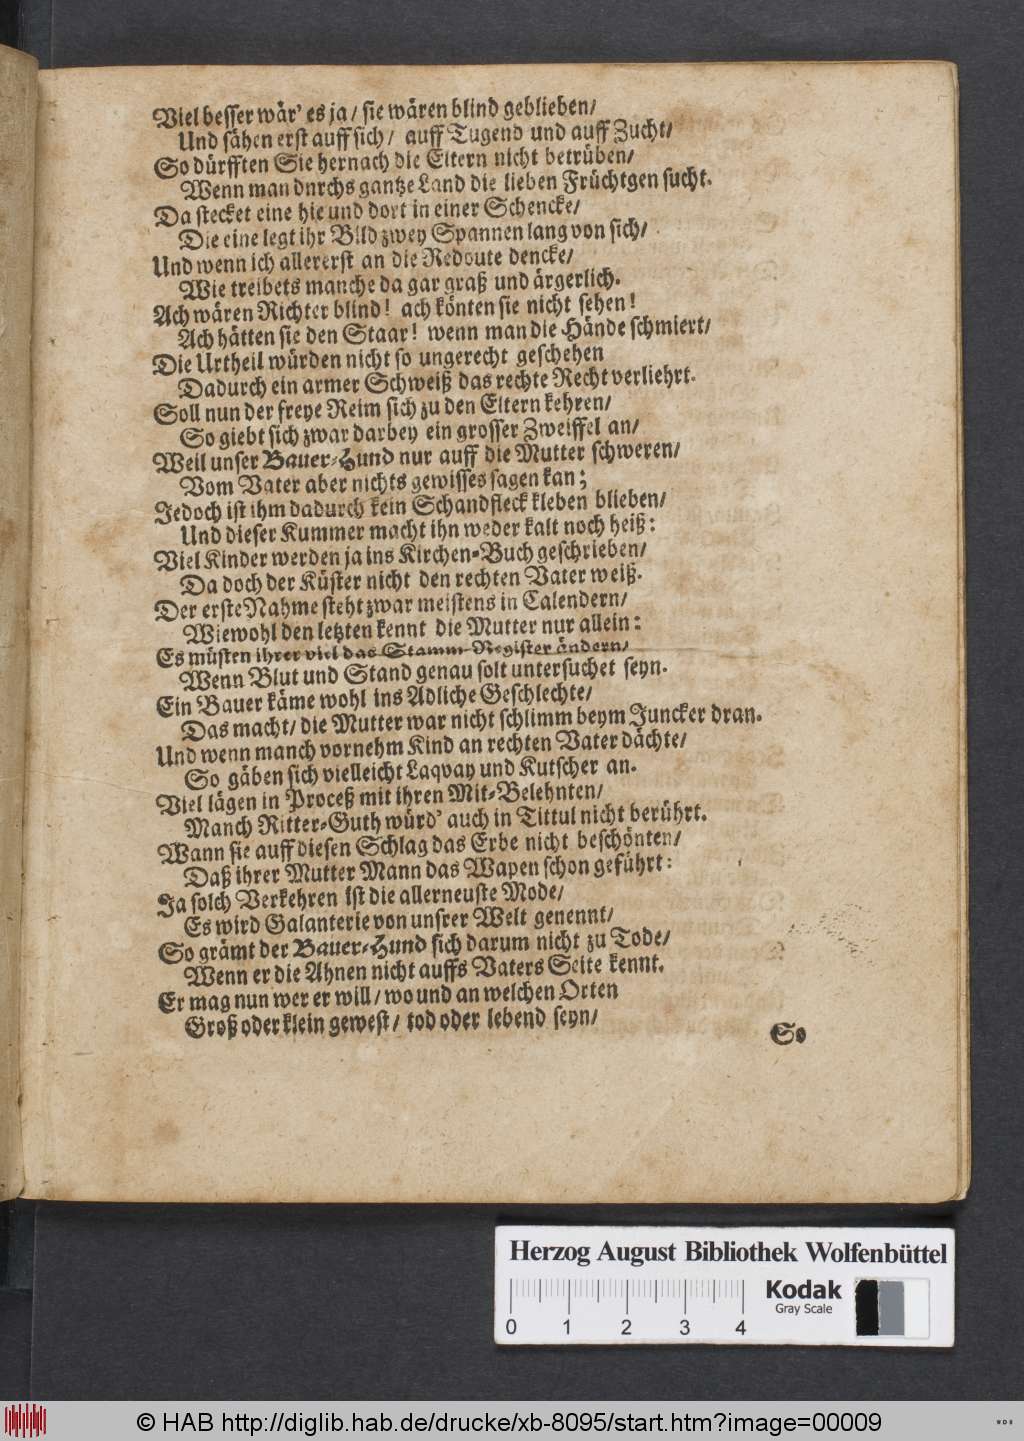 Viel besser wär' es ja/ sie wären blind geblieben/
Und sähen erst auff sich/ auff Tugend und auff Zucht/
So dürfften Sie hernach die Eltern nicht betrüben/
Wenn man dnrchs gantze Land die lieben Früchtgen sucht.
Da stecket eine hie und dort in einer Schencke/
Die eine legt ihr Bild zwey Spannen lang von sich/
Und wenn ich allererst an die Redoute dencke/
Wie treibets manche da gar graß und ärgerlich.
Ach wären Richter blind! ach könten sie nicht sehen!
Ach hätten sie den Staar! wenn man die Hände schmiert/
Die Urtheil würden nicht so ungerecht geschehen
Dadurch ein armer Schweiß das rechte Recht verliehrt.
Soll nun der freye Reim sich zu den Eltern kehren/
So giebt sich zwar darbey ein grosser Zweiffel an/
Weil unser Bauer-Hund nur auff die Mutter schweren/
Vom Vater aber nichts gewisses sagen kan;
Jedoch ist ihm dadurch kein Schandfleck kleben blieben/
Und dieser Kummer macht ihn weder kalt noch heiß:
Viel Kinder werden ja ins Kirchen-Buch geschrieben/
Da doch der Küster nicht den rechten Vater weiß.
Der erste Nahme steht zwar meistens in Calendern/
Wiewohl den letzten kennt die Mutter nur allein:
Es müsten ihrer viel das Stamm-Register ändern/
Wenn Blut und Stand genau solt untersuchet seyn.
Ein Bauer käme wohl ins Adliche Geschlechte/
Das macht/ die Mutter war nicht schlimm beym Juncker dran.
Und wenn manch vornehm Kind an rechten Vater dächte/
So gäben sich vielleicht Laqvay und Kutscher an.
Viel lägen in Proceß mit ihren Mit-Belehnten/
Manch Ritter-Guth würd' auch in Tittul nicht berührt.
Wann sie auff diesen Schlag das Erbe nicht beschönten/
Daß ihrer Mutter Mann das Wapen schon geführt:
Ja solch Verkehren ist die allerneuste Mode/
Es wird Galanterie von unsrer Welt genennt/
So grämt der Bauer-Hund sich darum nicht zu Tode/
Wenn er die Ahnen nicht auffs Vaters Seite kennt.
Er mag nun wer er will/ wo und an welchen Orten
Groß oder klein gewest/ tod oder lebend seyn/
So
Herzog August Bibliothek Wolfenbüttel
Kodak
Gray Scale
0 1 2 3 4
© HAB http://diglib.hab.de/drucke/xb-8095/start.htm?image=00009